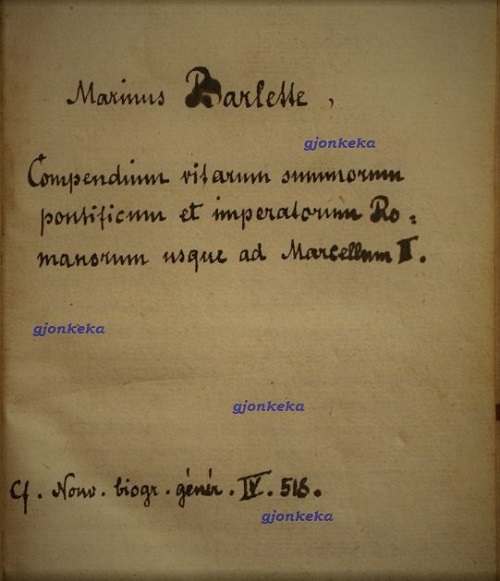 Marinus Barlette,
gjonkeka
Compendium vitarum summorum
pontificum et imperatorum Ro:
manorum usque ad Marcellum II.
gjonkeka
gjonkeka
Cf. Nouv. biogr. génér. IV. 516.
gjonkeka